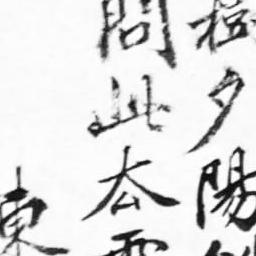 樹夕陽
問此太
東